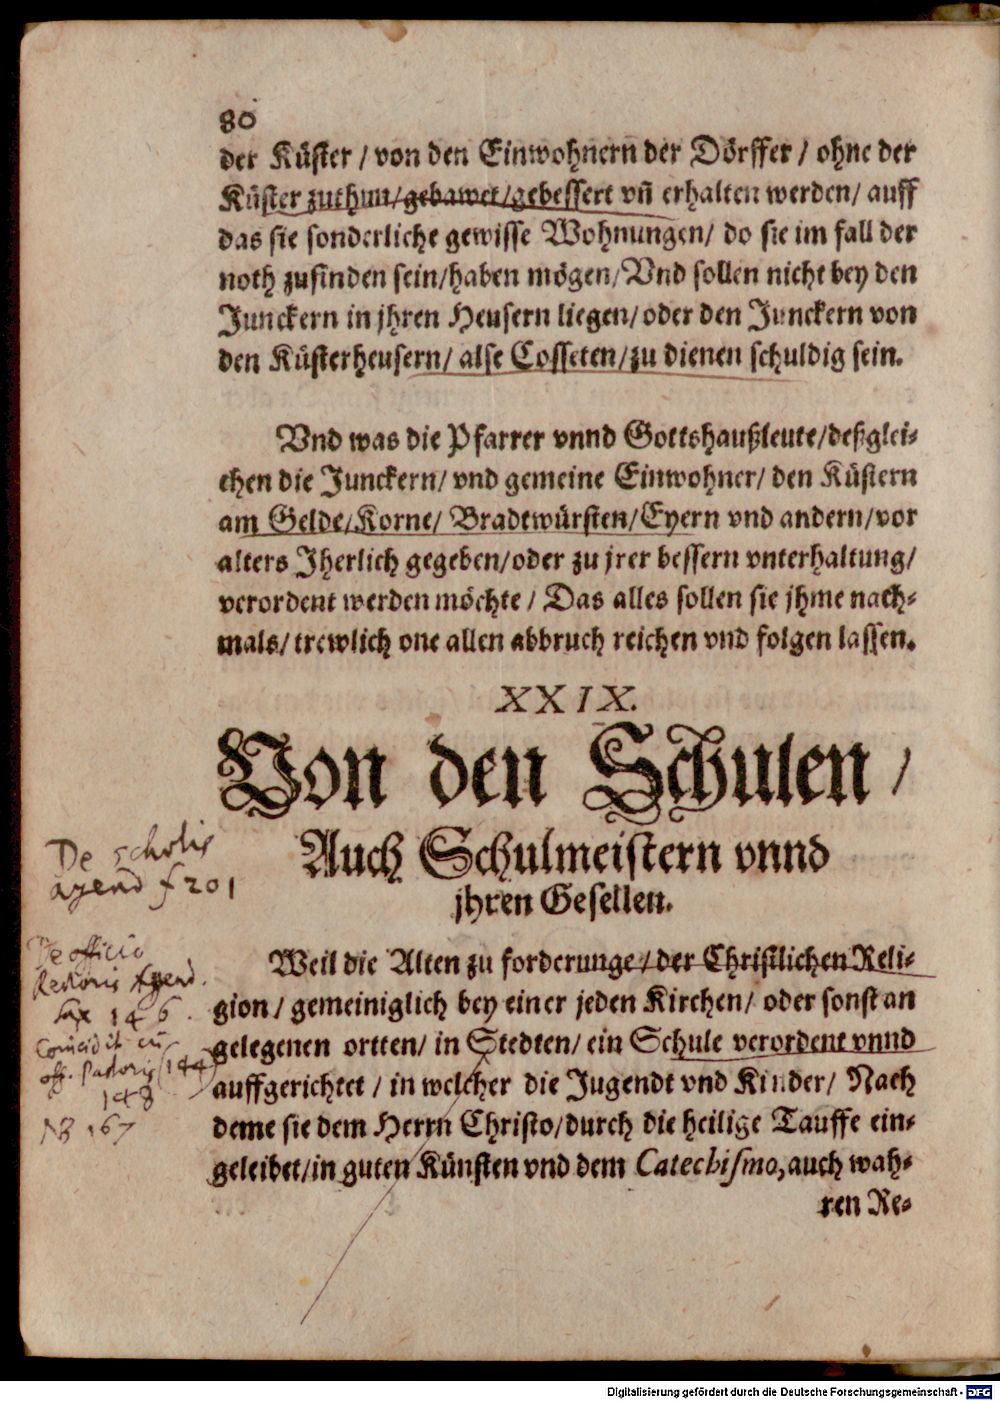 80
der Küster / von den Einwohnern der Dörffer / ohne der
Küster zuthun/gebawet/gebessert vñ erhalten werden/ auff
das sie sonderliche gewisse Wohnungen/ do sie im fall der
noth zufinden sein/haben mögen/Vnd sollen nicht bey den
Junckern in jhren Heusern liegen/oder den Junckern von
den Küsterheusern/ alse Cosseten/zu dienen schuldig sein.
Vnd was die Pfarrer vnnd Gottshaußleute/deßglei-
chen die Junckern/ vnd gemeine Einwohner/ den Küstern
am Gelde/Korne/ Bradtwürsten/Eyern vnd andern/vor
alters Jherlich gegeben/oder zu jrer bessern vnterhaltung/
verordent werden möchte / Das alles sollen sie jhme nach-
mals/ trewlich one allen abbruch reichen vnd folgen lassen.
XXIX.
Von den Schulen /
Auch Schulmeistern vnnd
jhren Gesellen.
De scholis
agend f 201
De officio
Rectoris Agend.
Sax 146.
Coincidit cū
off. Pastoris (144)
148
NB 167
Weil die Alten zu forderunge/der Christlichen Reli-
gion/ gemeiniglich bey einer jeden Kirchen/ oder sonst an
gelegenen ortten/ in Stedten/ ein Schule verordent vnnd
auffgerichtet / in welcher die Jugendt vnd Kinder/ Nach
deme sie dem Herrn Christo/durch die heilige Tauffe ein-
geleibet/in guten Künsten vnd dem Catechismo, auch wah-
ren Re-
Digitalisierung gefördert durch die Deutsche Forschungsgemeinschaft - DFG